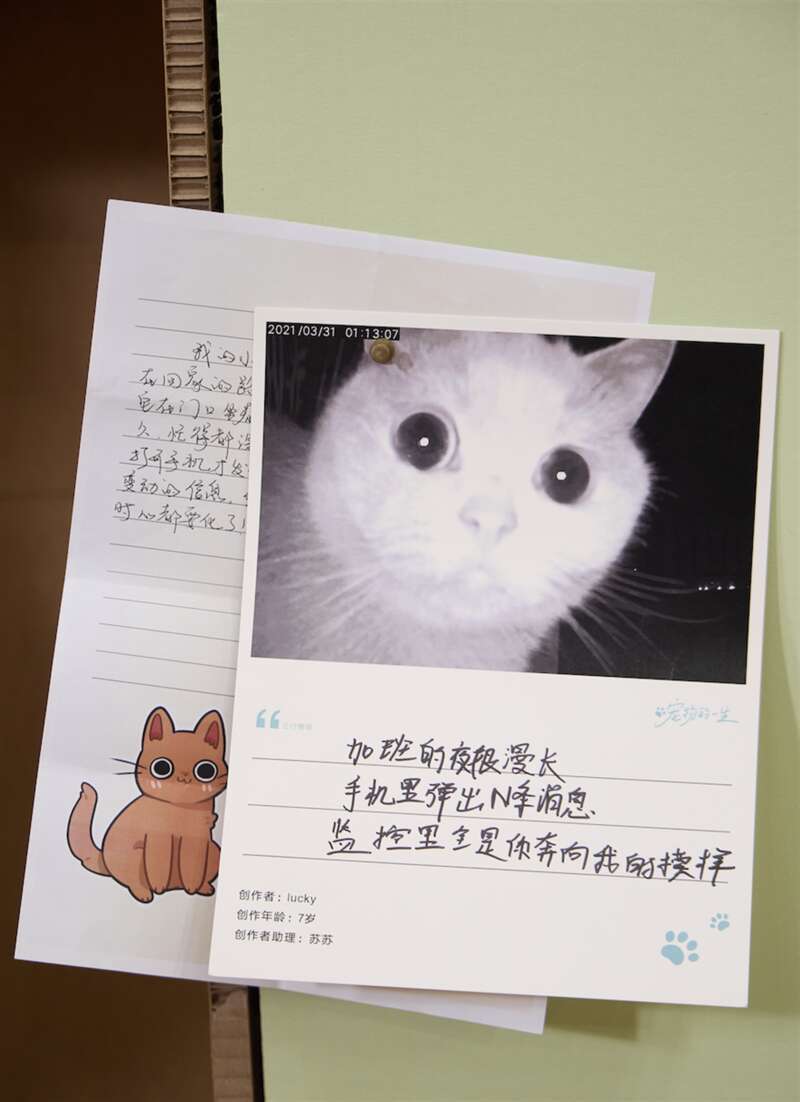 我的小
在回家的路
它在门口坐着
久,忙得都没
打开手机才发
变动的信息,
时心都要化了!
2021/03/31 01:13:07
宠物的一生
加班的夜很漫长
手机里弹出N条消息
监控里全是你奔向我的模样
创作者:lucky
创作年龄:7岁
创作者助理:苏苏